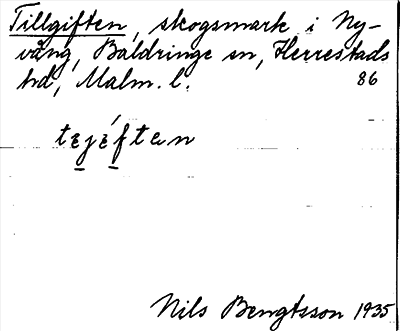 Tillgiften, skogsmark i Ny-
vång, Baldringe sn, Herrestads
hd, Malm. l. 86
tɛjɛ́ften
Nils Bengtsson 1935